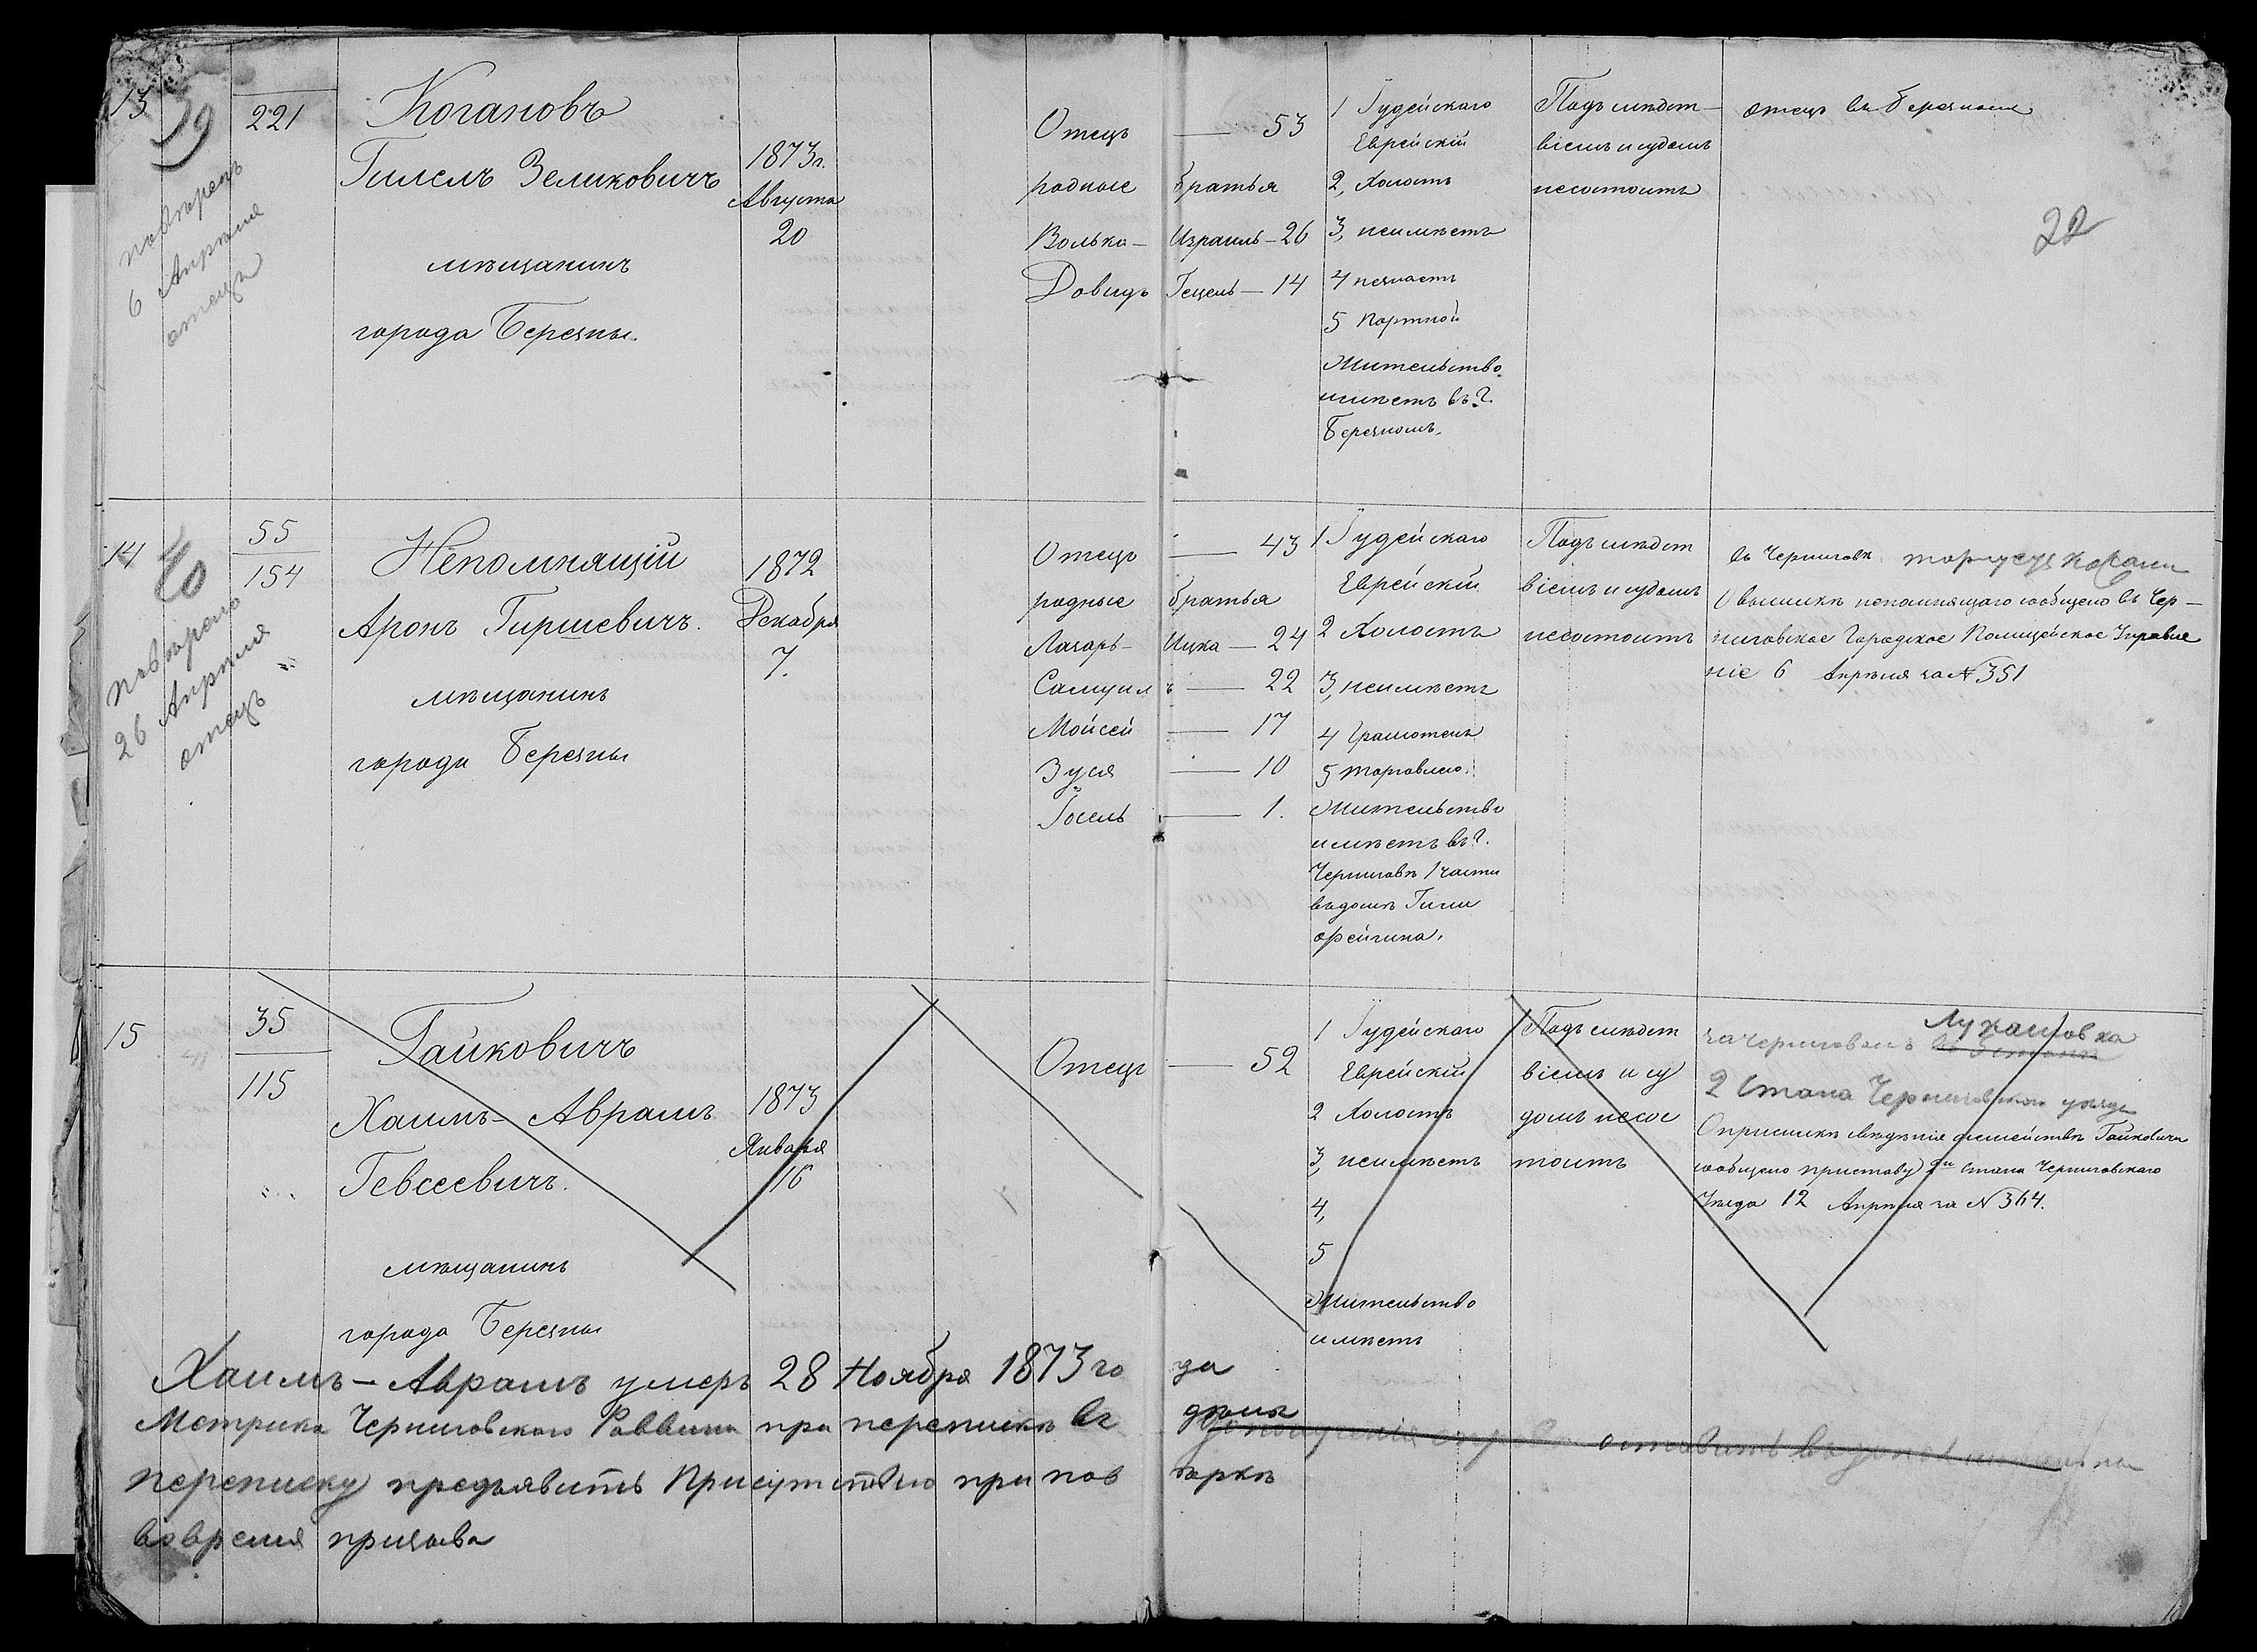 13
39
221
Когановъ
Гилелъ Зеликовичъ
мѣщанинъ
города Березны.
1873г.
Августа
20
Отецъ — 53
родные братья
Волька - Израиль - 26
Довидъ Гецель - 14
1 Іудейскаго
Еврейскій
2, Холостъ
3, неимѣетъ
4
5 Портной
Жительство
имѣетъ въ г.
Березномъ.
Подъ слѣдст-
віемъ и судомъ
несостоитъ
отецъ въ Березномъ
22
6 Апрѣля
отецъ
14
40
55
154
Непомнящій
Аронъ Гиршевичъ.
мѣщанинъ
города Березны
1872
Декабря
7.
Отецъ — 43
родные братья
Лазарь - Ицка — 24
Самуилъ — 22
Мойсей — 17
Зуся — 10
Іосель — 1.
1 Іудейскаго
Еврейскій
2 Холостъ
3, неимѣетъ
4 Грамотенъ
5 торговлею.
Жительство
имѣетъ въ г.
Черниговѣ 1 части
въ домѣ
Подъ слѣдст
віемъ и судомъ
несостоитъ
въ Черниговѣ
О высылкѣ непомнящаго сообщено въ Чер-
ниговское Городское Полицейское Управле
ніе 6 Апрѣля за № 351
26 Апрѣля
отецъ
15
35
115
Гайковичъ
Хаимъ - Аврамъ
Гевсеевичъ.
мѣщанинъ
города Березны
1873
Января
16
Отецъ — 52
1 Іудейскаго
Еврейскій
2 Холостъ
3, неимѣетъ
4,
5
Жительство
имѣетъ
Подъ слѣдст
віемъ и су
домъ несос
тоитъ
за Черниговомъ
2 Стана Черниговскаго уѣзда
О присылкѣ свѣдѣнія о семействѣ Гайковича
сообщено приставу 2го стана Черниговскаго
Уѣзда 12 Апрѣля за № 364.
Хаимъ - Аврамъ умеръ 28 Ноября 1873 года
Метрика Черниговскаго Раввина при перепискѣ
переписку предъявить Присутствію при повѣркѣ
во время призыва